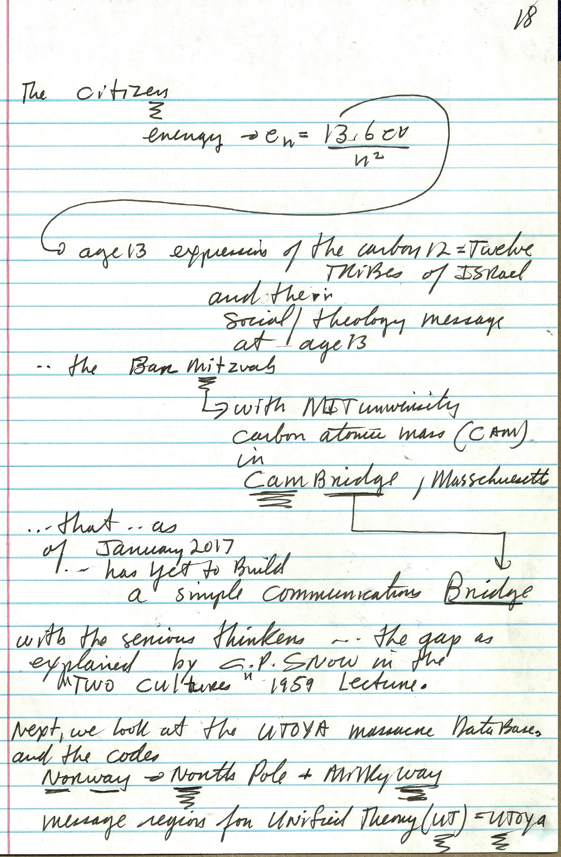 18
The citizen
energy → en = 13.6 ev
n²
age 13 expression of the carbon 12 = Twelve
TRIBES of ISRael
and their
social/theology message
at age 13
.. the Bar Mitzvah
with MIT university
carbon atomic mass (CAM)
in
CamBridge, Masschusetts
... that .. as
of January 2017
.. has yet to Build
a simple communications Bridge
with the serious thinkers ... the gap as
explained by C.P. SNOW in the
"TWO CULtures" 1959 Lecture.
Next, we look at the UTOYA massacre DataBase,
and the codes
Norway → North Pole + Milky way
message regions for Unified Theory (UT) = UToya